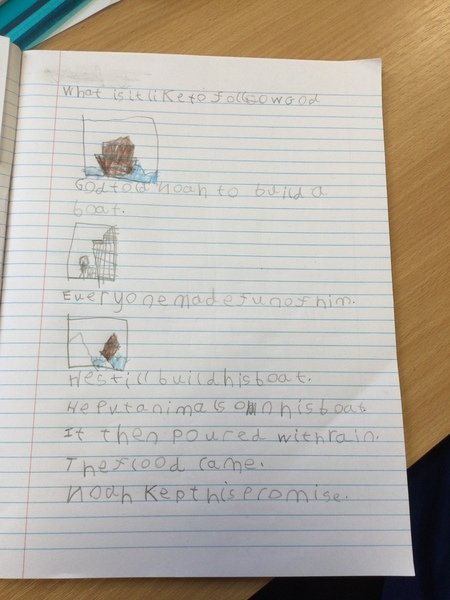 What is it like to follow God
God told Noah to build a
boat.
Everyone made fun of him.
He still build his boat.
He put animals on his boat
It then poured with rain.
The flood came.
Noah kept his promise.